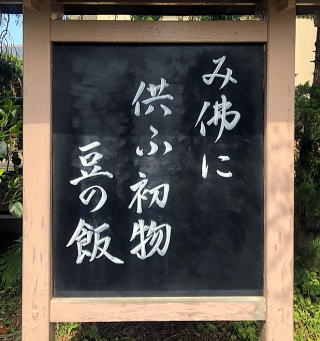 み佛に
供ふ初物
豆の飯